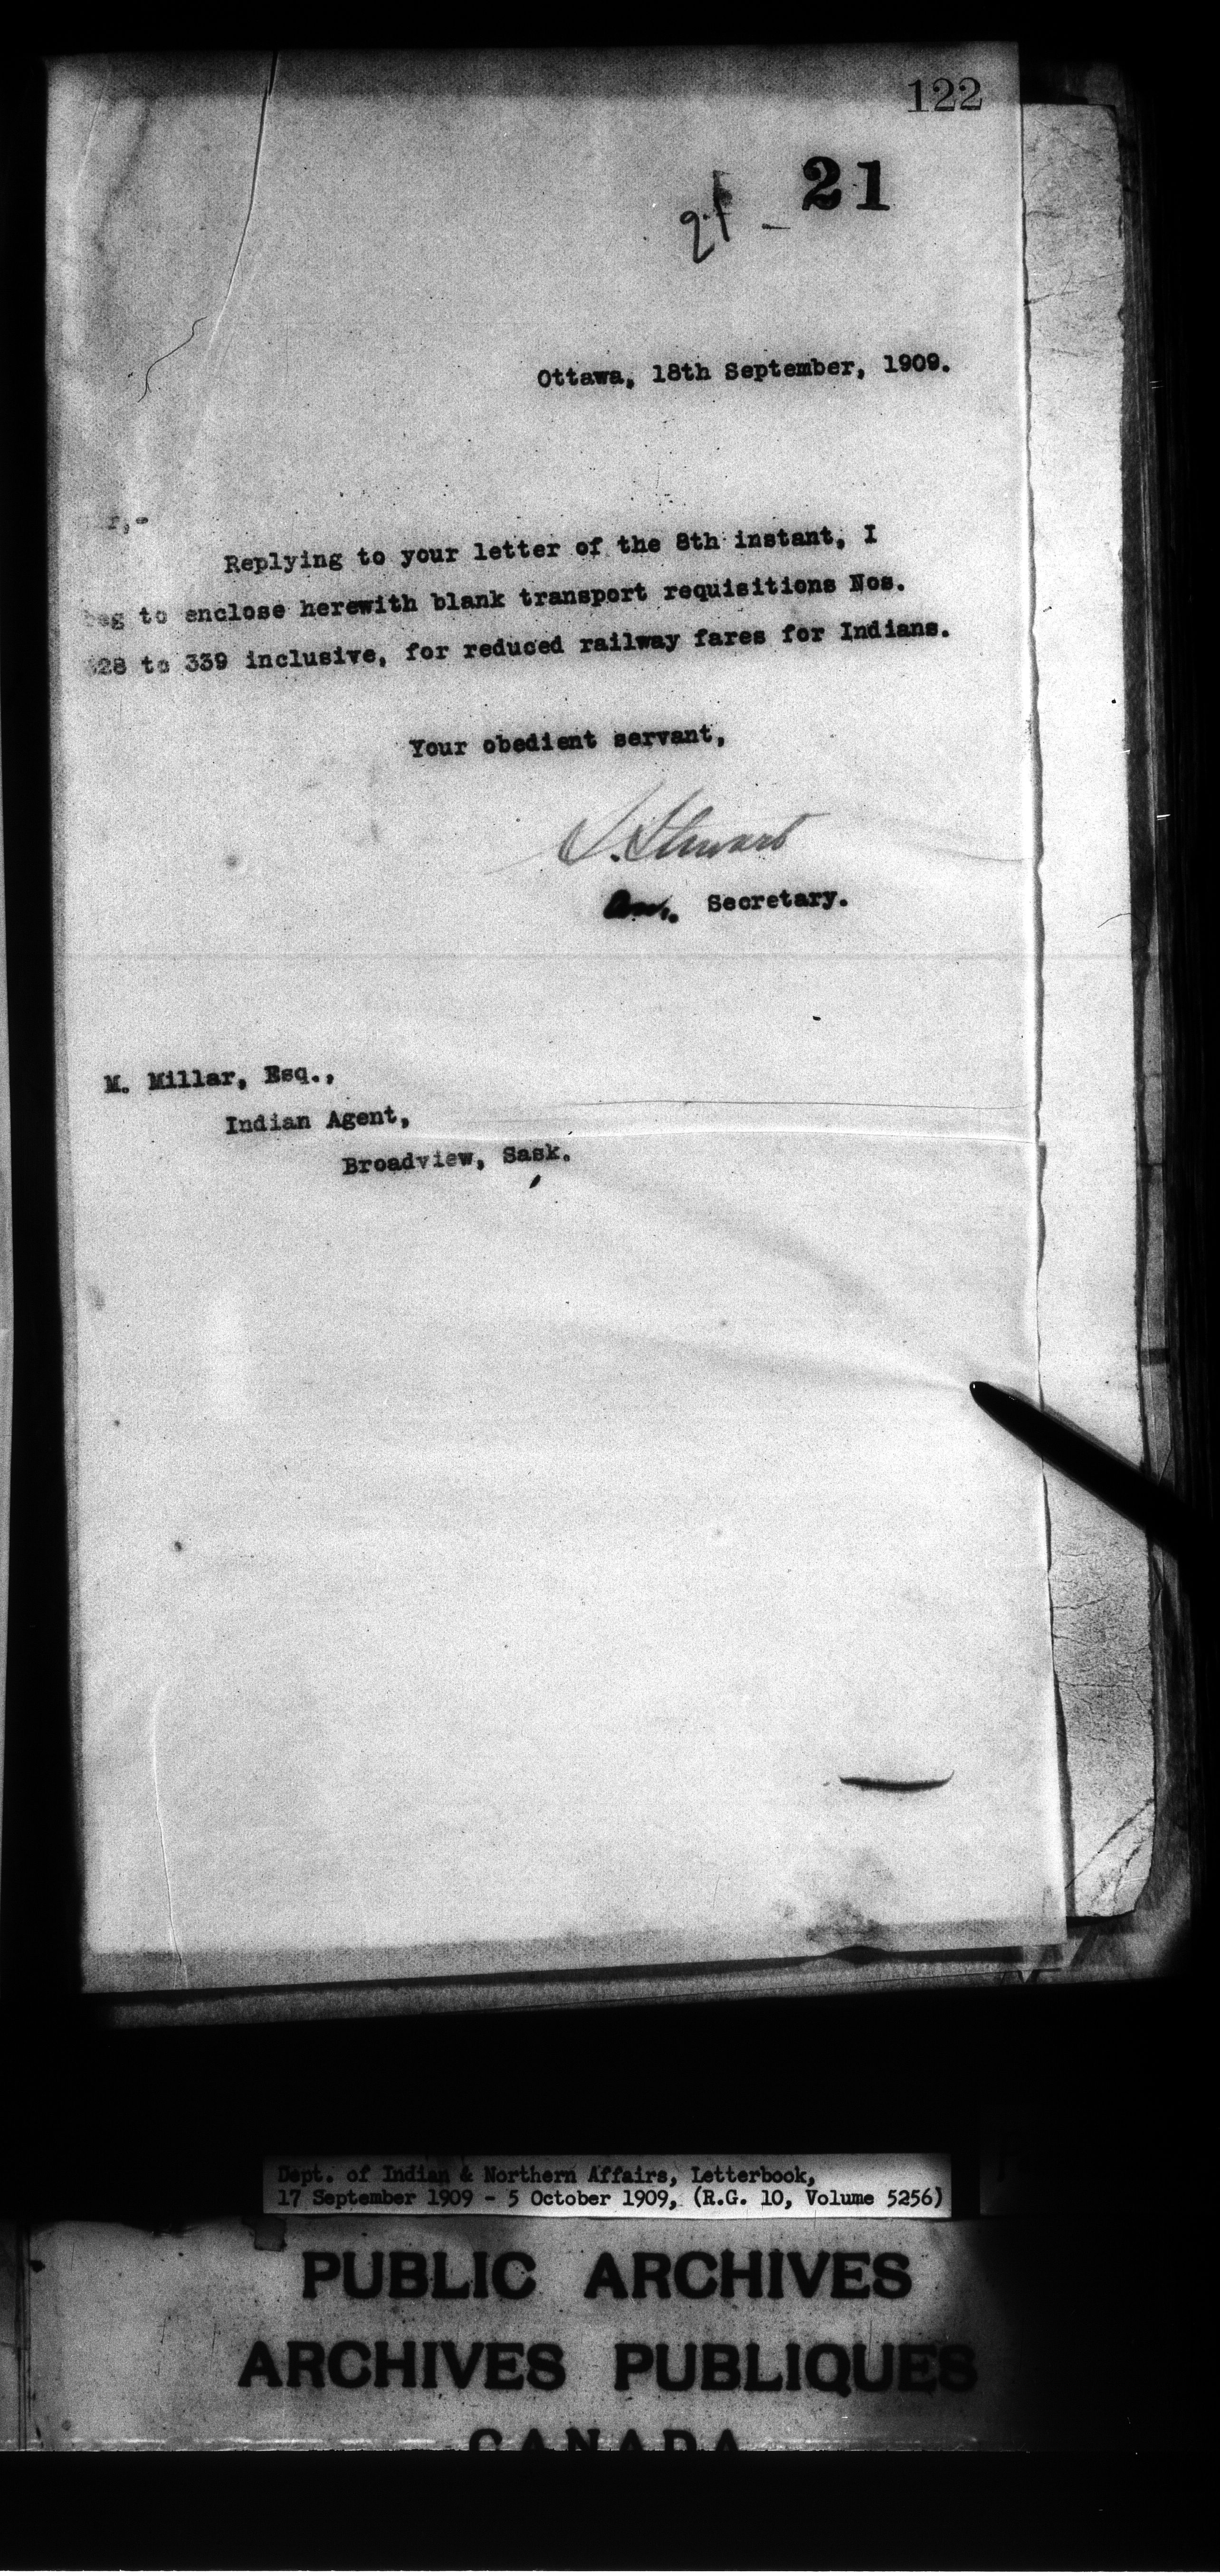 122
21
Ottawa, 18th September, 1909.
Replying to your letter of the 8th instant, I
beg to enclose herewith blank transport requisitions Nos.
328 to 339 inclusive, for reduced railway fares for Indians.
Your obedient servant,
S. Stewart
Secretary.
M. Millar, Esq.,
Indian Agent,
Broadview, Sask.
Dept. of Indian & Northern Affairs, Letterbook,
17 September 1909 - 5 October 1909, (R.G. 10, Volume 5256)
PUBLIC ARCHIVES
ARCHIVES PUBLIQUES
CANADA